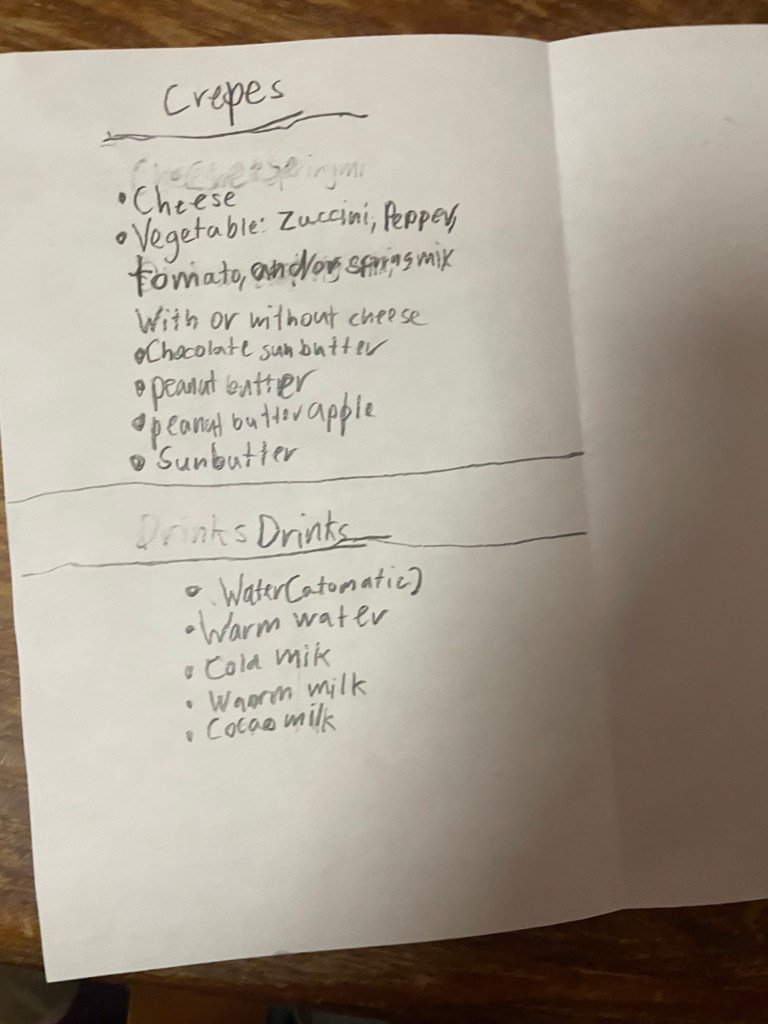 Crepes
• Cheese
• Vegetable: Zuccini, Pepper,
tomato, and/or spring mix
With or without cheese
• Chocolate sunbutter
• peanut butter
• peanut butter apple
• Sunbutter
Drinks Drinks
• Water(atomatic)
• Warm water
• Cold mik
• Waorm milk
• Cocao milk